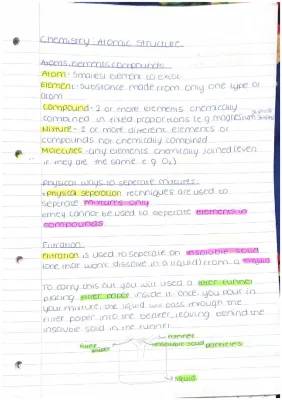 Chemistry - Atomic Structure
Atoms, elements, compounds
Atom - Smallest element to exist
Element - Substance made from only one type of
atom
Compound - 2 or more elements chemically
combined in fixed proportions (e.g magnesium
Mixture - 2 or more different elements or
compounds not chemically combined
Molecules - any elements chemically joined (even
if they are the same e.g. O₂)
Physical ways to seperate mixtures
Physical seperation techniques are used to
seperate mixtures only
They cannot be used to seperate elements in
compounds
Filtration
Filtration is used to seperate an insoluble solid
(one that wont dissolve in a liquid) from a liquid
To carry this out you will used a filter funnel
placing filter paper inside it. Once you pour in
your mixture, the liquid will pass through the
filter paper into the beaker, leaving behind the
insoluble solid in the funnel
filter paper
funnel
insoluble solid particles
liquid